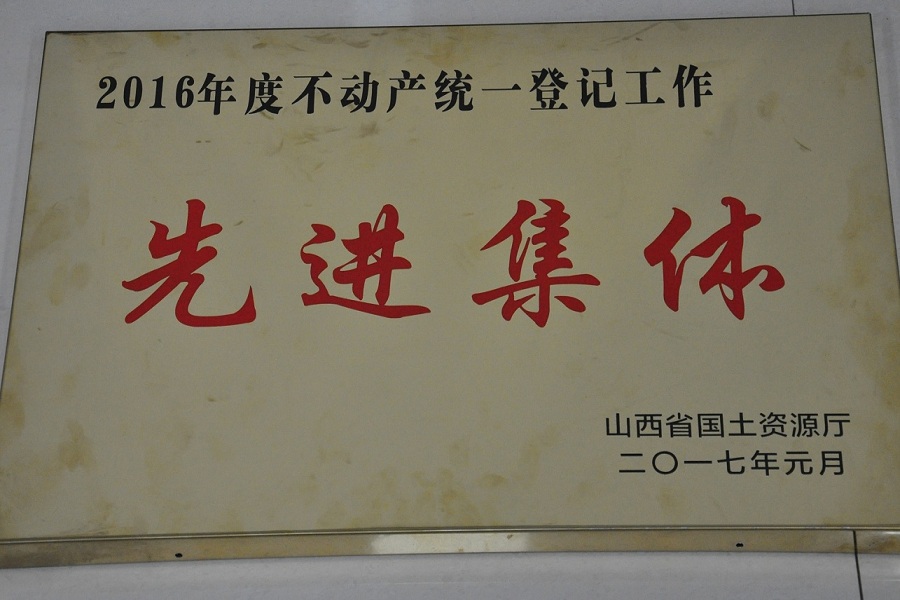 2016年度不动产统一登记工作
先进集体
山西省国土资源厅
二〇一七年元月